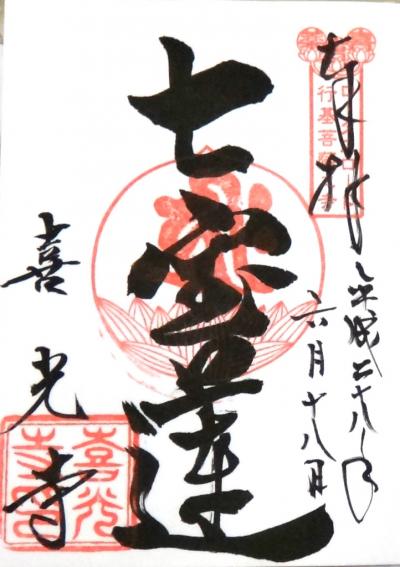 奉拝
平成二十八年
六月十八日
七宝蓮
喜光寺
行基菩薩
喜光寺